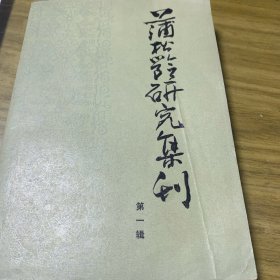 蒲松齡研究集刊
第一辑